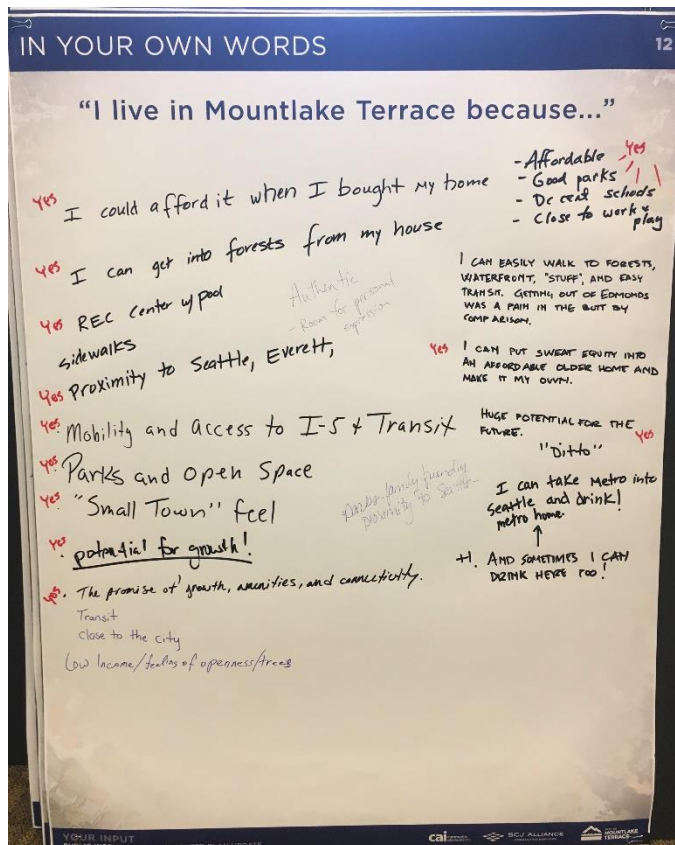 IN YOUR OWN WORDS
12
"I live in Mountlake Terrace because..."
Yes I could afford it when I bought my home
Yes I can get into forests from my house
Yes REC Center w/pool
sidewalks
Yes Proximity to Seattle, Everett,
Yes Mobility and access to I-5 & Transit
Yes Parks and Open Space
Yes "Small Town" feel
Yes potential for growth!
Yes. The promise of growth, amenities, and connectivity.
Transit
Close to the city
Low Income/feeling of openness/trees
Authentic
- Room for personal
expression
family friendly
proximity to Seattle
- Affordable Yes
- Good parks
- Decent schools
- Close to work &
play
I CAN EASILY WALK TO FORESTS,
WATERFRONT, "STUFF", AND EASY
TRANSIT. GETTING OUT OF EDMONDS
WAS A PAIN IN THE BUTT BY
COMPARISON.
Yes I CAN PUT SWEAT EQUITY INTO
AN AFFORDABLE OLDER HOME AND
MAKE IT MY OWN.
HUGE POTENTIAL FOR THE
FUTURE. Yes
"Ditto"
I can take Metro into
Seattle and drink!
metro home.
+1. AND SOMETIMES I CAN
DRINK HERE TOO!
YOUR INPUT
cai
SCJ ALLIANCE
MOUNTLAKE
TERRACE